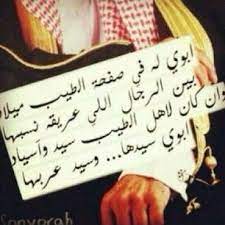 ابوي له في صفحة الطيب ميلاد
بين الرجال اللي عريقه نسبها
وان كان لاهل الطيب سيد وأسياد
ابوي سيدها... وسيد عربها
Sonyorah